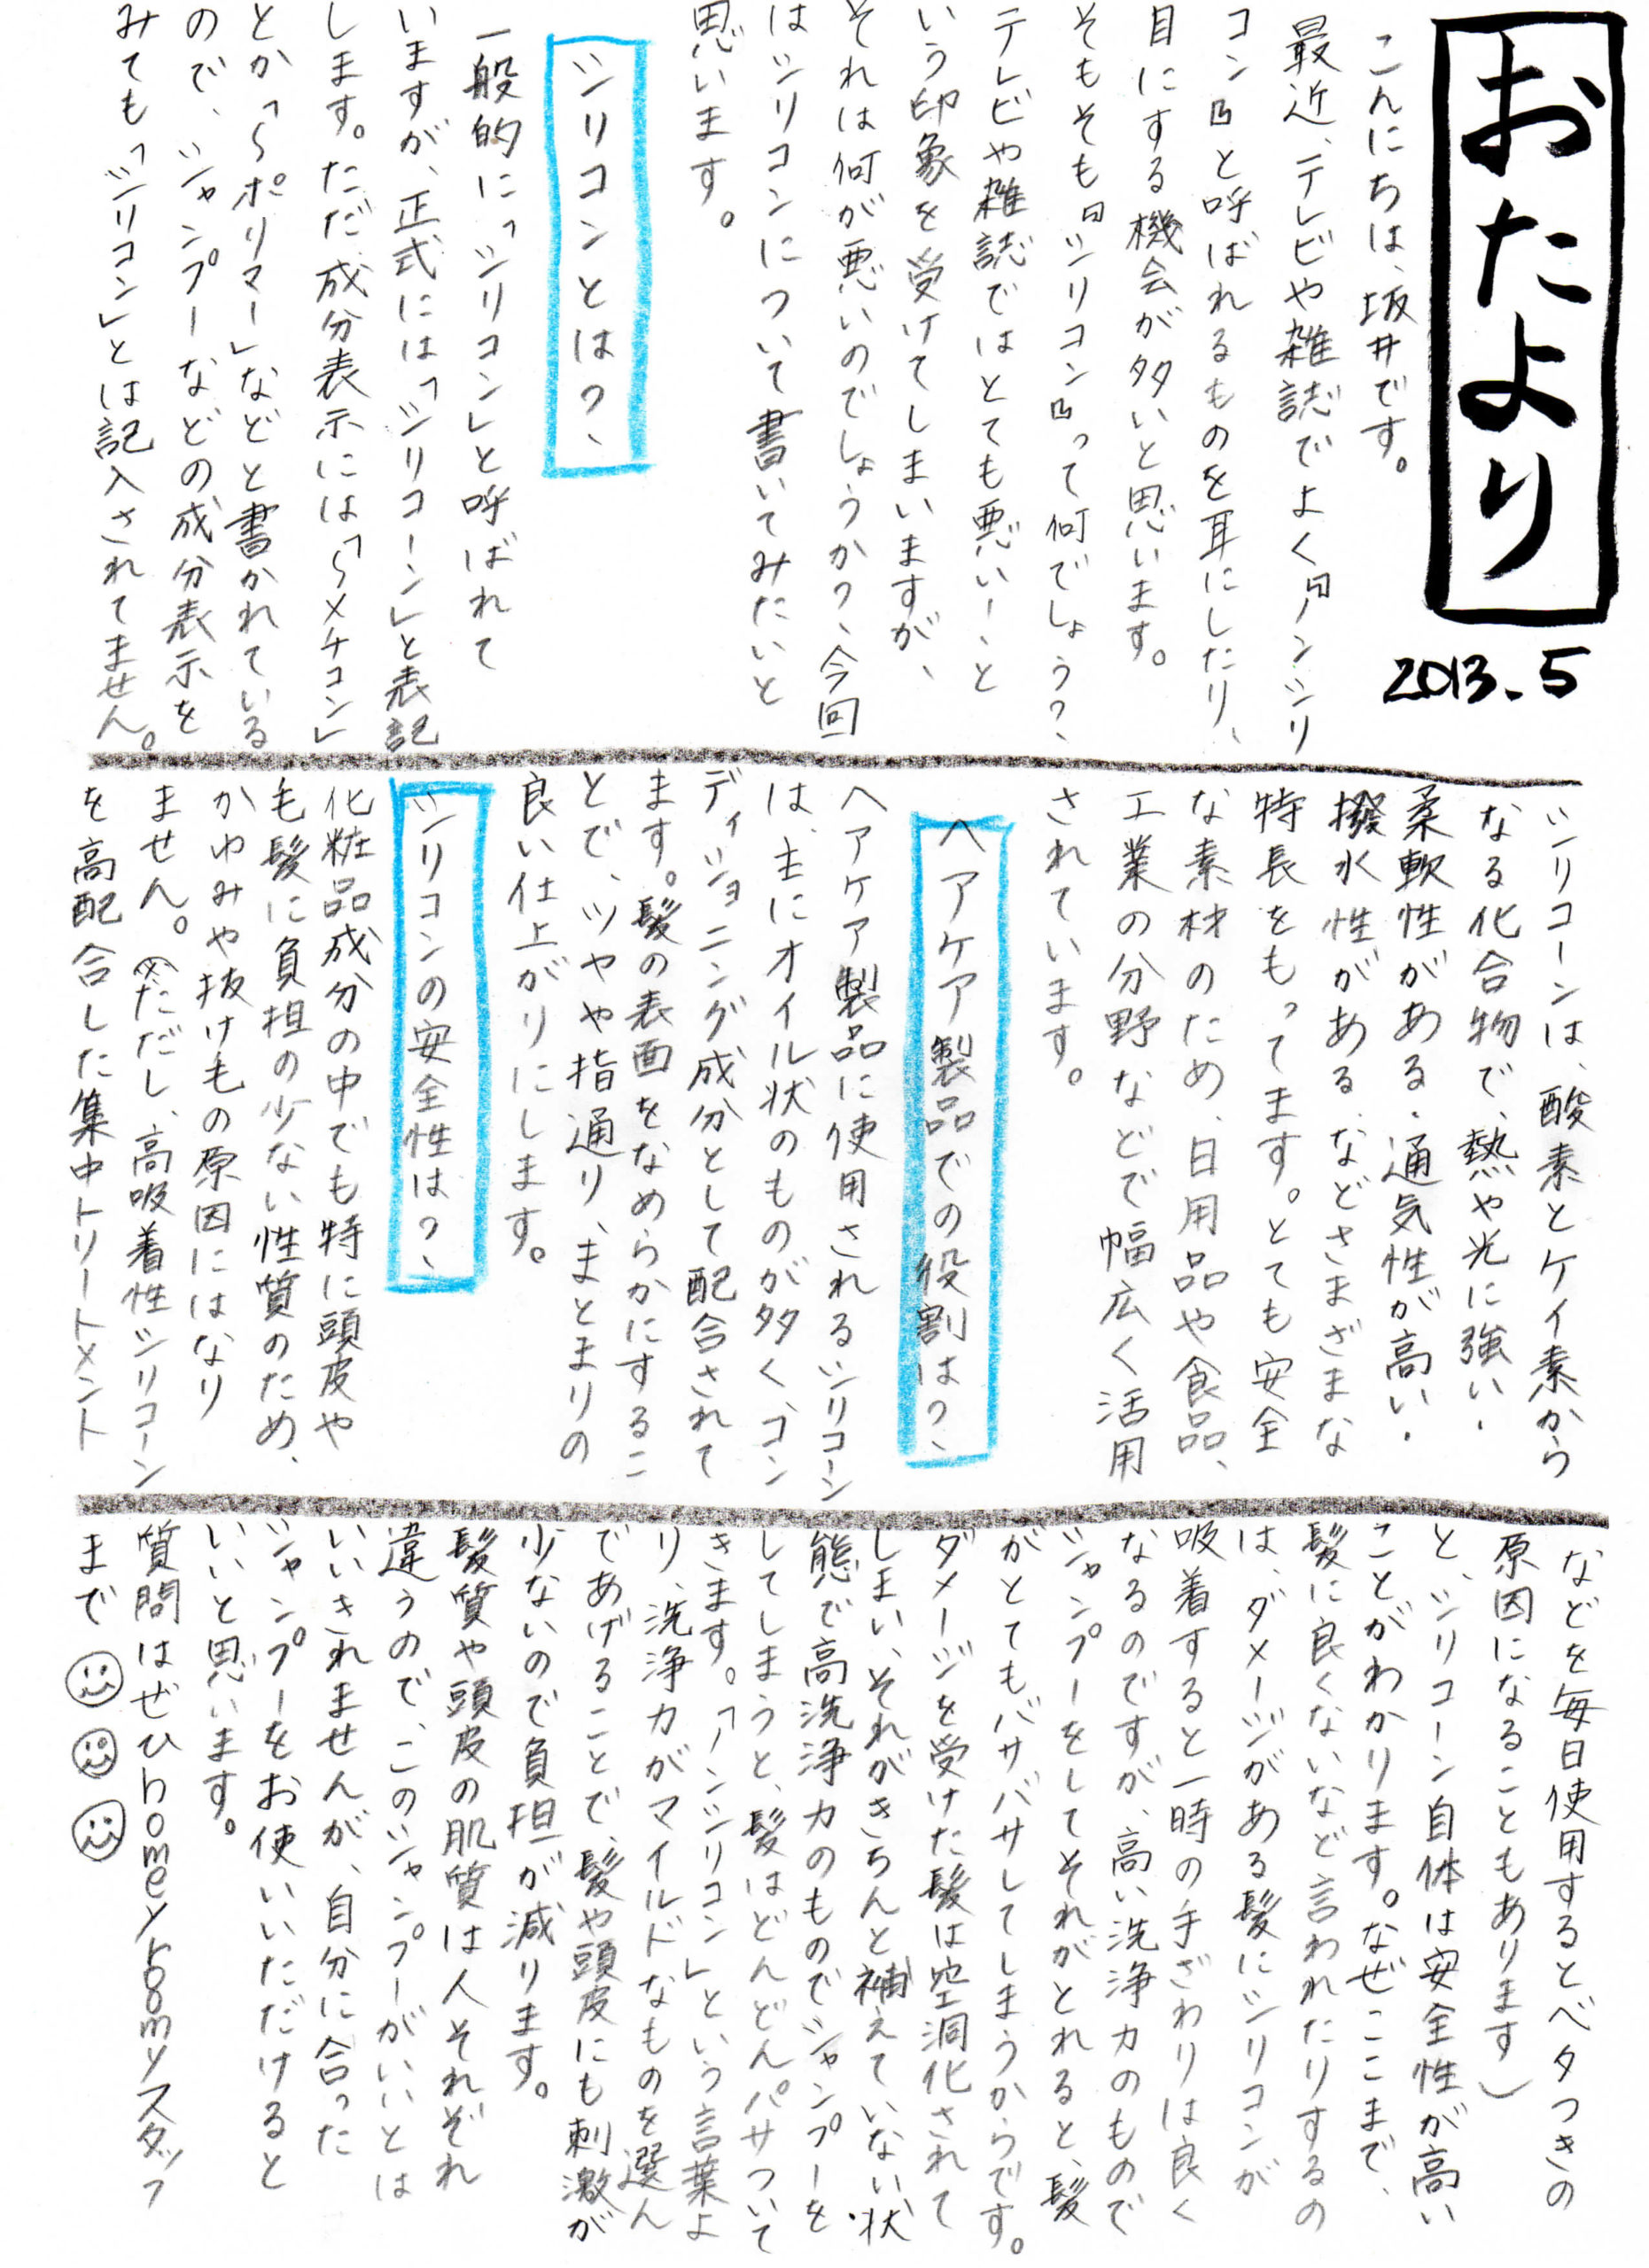 おたより
2013.5
こんにちは、坂井です。
最近、テレビや雑誌でよく『ノンシリ
コン』と呼ばれるものを耳にしたり、
目にする機会が多いと思います。
そもそも『シリコン』って何でしょう？、
テレビや雑誌ではとても悪い！、と
いう印象を受けてしまいますが、
それは何が悪いのでしょうか？、今回
はシリコンについて書いてみたいと
思います。
シリコンとは？、
一般的に「シリコン」と呼ばれて
いますが、正式には「シリコーン」と表記
します。ただ成分表示には「〜メチコン」
とか「〜ポリマー」などと書かれている
ので、シャンプーなどの成分表示を
みても「シリコン」とは記入されてません。
シリコーンは、酸素とケイ素から
なる化合物で、熱や光に強い・
柔軟性がある・通気性が高い・
撥水性がある、などさまざまな
特長をもってます。とても安全
な素材のため、日用品や食品、
工業の分野などで幅広く活用
されています。
ヘアケア製品での役割は？、
ヘアケア製品に使用されるシリコーン
は、主にオイル状のものが多く、コン
ディショニング成分として配合されて
ます。髪の表面をなめらかにするこ
とで、ツヤや指通り、まとまりの
良い仕上がりにします。
シリコンの安全性は？、
化粧品成分の中でも特に頭皮や
毛髪に負担の少ない性質のため、
かゆみや抜け毛の原因にはなり
ません。(※ただし、高吸着性シリコーン
を高配合した集中トリートメント
などを毎日使用するとベタつきの
原因になることもあります)
と、シリコーン自体は安全性が高い
ことがわかります。なぜここまで、
髪に良くないなど言われたりするの
は、ダメージがある髪にシリコンが
吸着すると一時の手ざわりは良く
なるのですが、高い洗浄力のもので
シャンプーをしてそれがとれると、髪
がとてもバサバサしてしまうからです。
ダメージを受けた髪は空洞化されて
しまい、それがきちんと補えていない状
態で高洗浄力のものでシャンプーを
してしまうと、髪はどんどんパサついて
きます。「ノンシリコン」という言葉よ
り、洗浄力がマイルドなものを選ん
であげることで、髪や頭皮にも刺激が
少ないので負担が減ります。
髪質や頭皮の肌質は人それぞれ
違うので、このシャンプーがいいとは
いいきれませんが、自分に合った
シャンプーをお使いいただけると
いいと思います。
質問はぜひhomeyroomyスタッフ
まで